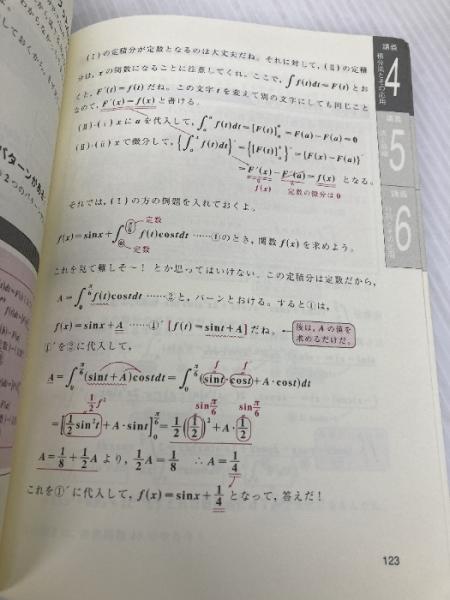 (Ⅰ)の定積分が定数となるのは大丈夫だね。それに対して，(Ⅱ)の定積
分は，xの関数になることに注意してくれ。ここで，∫f(t)dt=F(t)とお
くと，F´(t)=f(t)だね。この文字tを変えて別の文字にしても同じこと
なので，F´(x)=f(x)と書ける。
(Ⅱ)-(ⅰ)xにaを代入して，∫ₐᵃf(t)dt=[F(t)]ₐᵃ=F(a)-F(a)=0
(Ⅱ)-(ⅱ)xで微分して，{∫ₐˣf(t)dt}´={[F(t)]ₐˣ}´={F(x)-F(a)}´
=F´(x)-F´(a)=f(x) となる。
f(x) 定数の微分は0
それでは，(Ⅰ)の方の例題を入れておくよ。
定数
f(x)=sinx+∫₀^(π/6) f(t)costdt ……①のとき，関数f(x)を求めよう。
定数
これを見て難しそ～！とか思ってはいけない。この定積分は定数だから，
A=∫₀^(π/6) f(t)costdt ……②と，バーンとおける。すると①は，
f(x)=sinx+A ……①´ [f(t)=sint+A]だね。 後は，Aの値を
求めるだけだ。
①´を②に代入して，
A=∫₀^(π/6)(sint+A)costdt=∫₀^(π/6)(sint・cost+A・cost)dt
f f´
1/2 f² sinπ/6 sinπ/6
=[1/2 sin²t+A・sint]₀^(π/6)=1/2(1/2)²+A・1/2
A=1/8+1/2A より，1/2A=1/8 ∴A=1/4
これを①´に代入して，f(x)=sinx+1/4 となって，答えだ！
123
講義
4
積分法とその応用
講義
5
講義
6